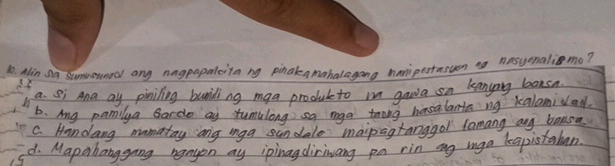 10. Alin sa sumusunod ang nagpapakita ng pinakamahalagang manipestasyon ng nasyonalismo?
a. Si Ana ay piniling bumili ng mga produkto na gawa sa kanyang bansa.
b. Ang pamilya Garde ay tumulong sa mga taong nasalanta ng kalamidad.
c. Handang mamatay ang mga sundalo maipagtanggol lamang ang bansa.
d. Mapahanggang ngayon ay ipinagdiriwang pa rin ang mga kapistahan.